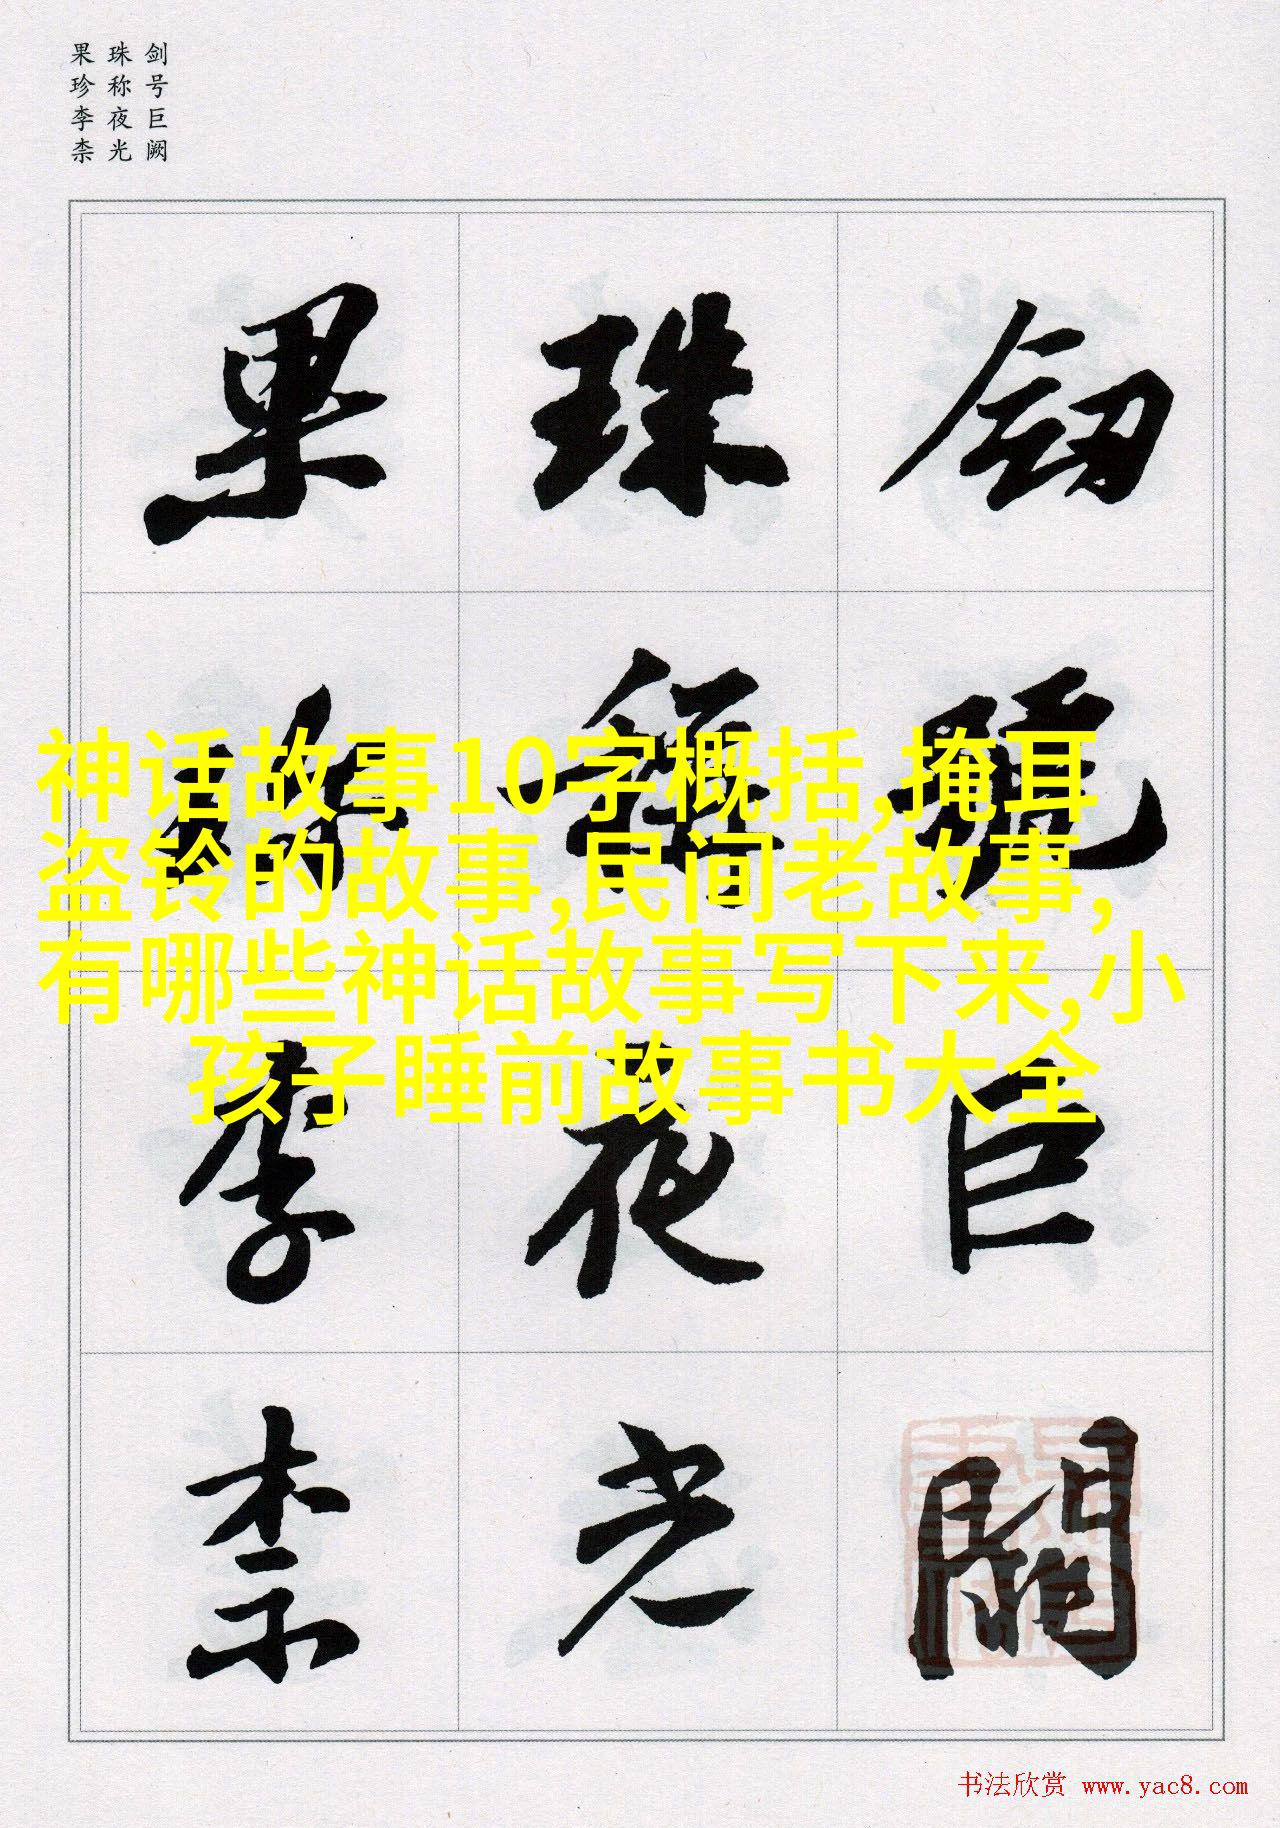 剑号巨阙
珠称夜光
果珍李柰
劍號巨闕
珠稱夜光
果珍李柰
神话故事10字概括,掩耳
盗铃的故事,民间老故事,
有哪些神话故事写下来,小
孩子睡前故事书大全
书法欣赏 www.yac8.com